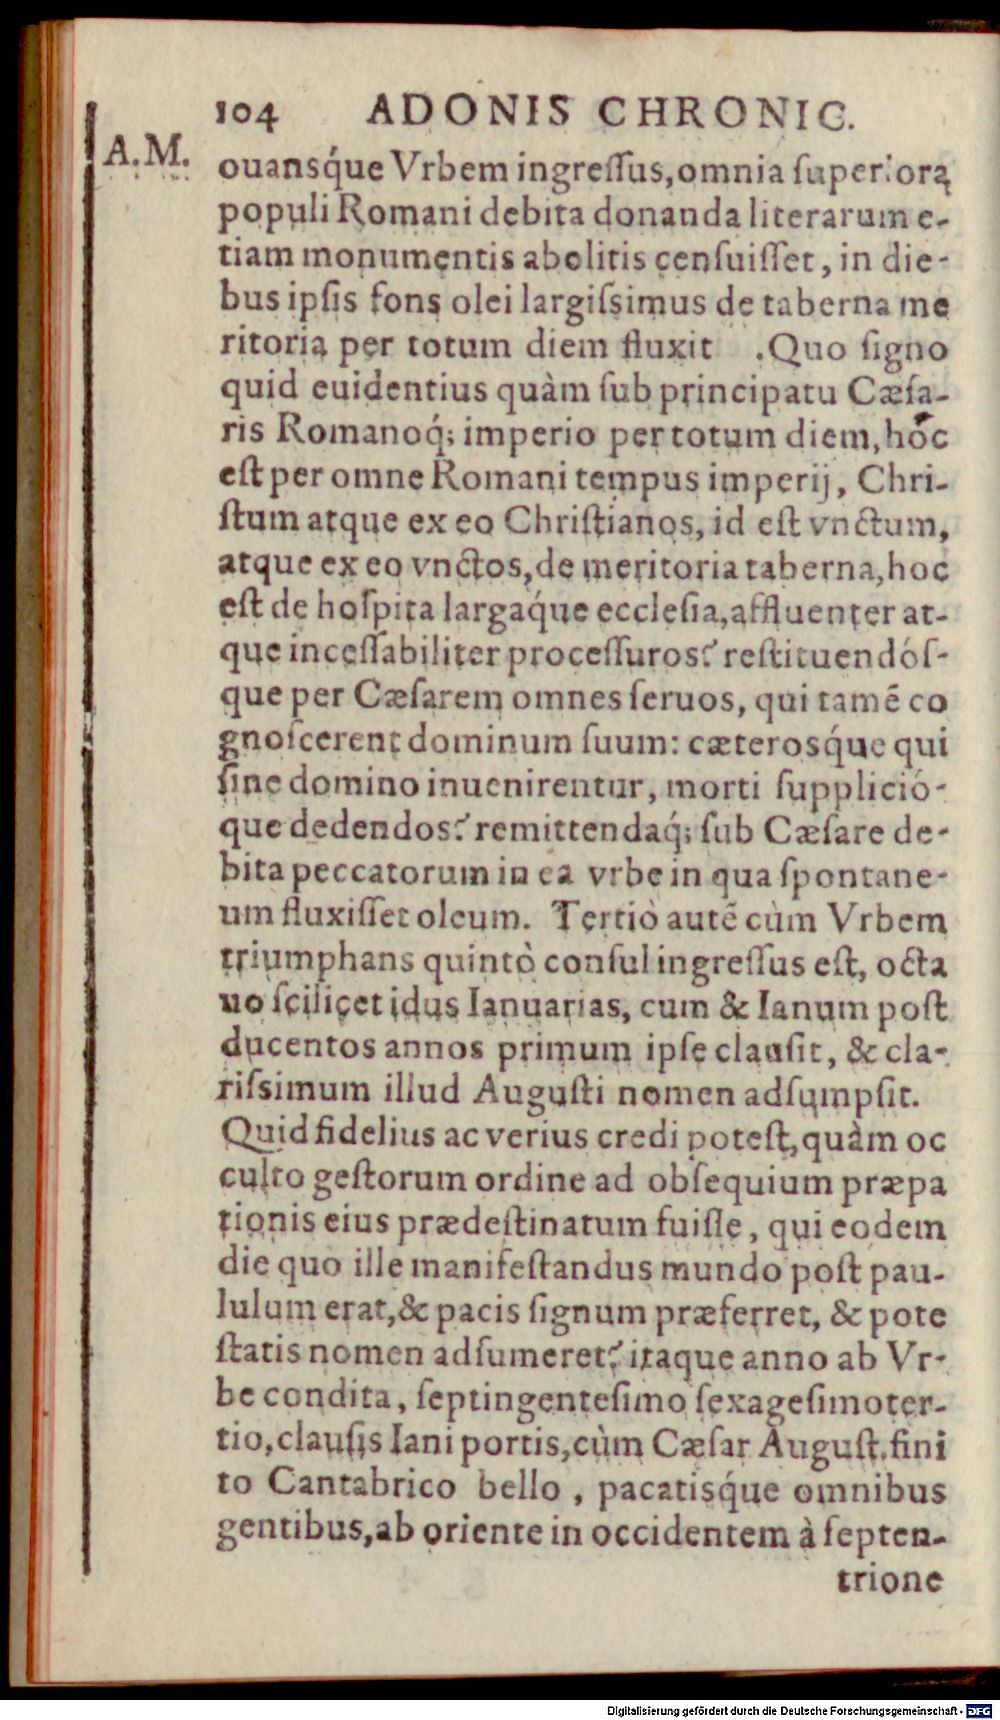 104 ADONIS CHRONIC.
A.M.
ouansq́ue Vrbem ingreſſus, omnia superiora
populi Romani debita donanda literarum e-
tiam monumentis abolitis cenſuiſſet, in die-
bus ipſis fons olei largiſsimus de taberna me
ritoria per totum diem fluxit .Quo ſigno
quid euidentius quàm ſub principatu Cæſa-
ris Romanoq́; imperio per totum diem, hoc
eſt per omne Romani tempus imperij, Chri-
ſtum atque ex eo Chriſtianos, id eſt vnctum,
atque ex eo vnctos, de meritoria taberna, hoc
eſt de hoſpita largaq́ue eccleſia, affluenter at-
que inceſſabiliter proceſſuros? reſtituendóſ-
que per Cæſarem omnes ſeruos, qui tamē co
gnoſcerent dominum ſuum: cæterosq́ue qui
ſine domino inuenirentur, morti ſupplició-
que dedendos? remittendaq́; ſub Cæſare de-
bita peccatorum in ea vrbe in qua ſpontane-
um fluxiſſet oleum. Tertiò autē cùm Vrbem
triumphans quintò conſul ingreſſus eſt, octa
uo ſcilicet idus Ianuarias, cum & Ianum poſt
ducentos annos primum ipſe clauſit, & cla-
riſsimum illud Auguſti nomen adſumpſit.
Quid fidelius ac verius credi poteſt, quàm oc
culto geſtorum ordine ad obſequium præpa
rionis eius prædeſtinatum fuiſſe, qui eodem
die quo ille manifeſtandus mundo poſt pau-
lulum erat, & pacis ſignum præferret, & pote
ſtatis nomen adſumeret? itaque anno ab Vr-
be condita, ſeptingenteſimo ſexageſimoter-
tio, clauſis Iani portis, cùm Cæſar Auguſt. fini
to Cantabrico bello, pacatisq́ue omnibus
gentibus, ab oriente in occidentem à ſepten-
trione
Digitalisierung gefördert durch die Deutsche Forschungsgemeinschaft - DFG